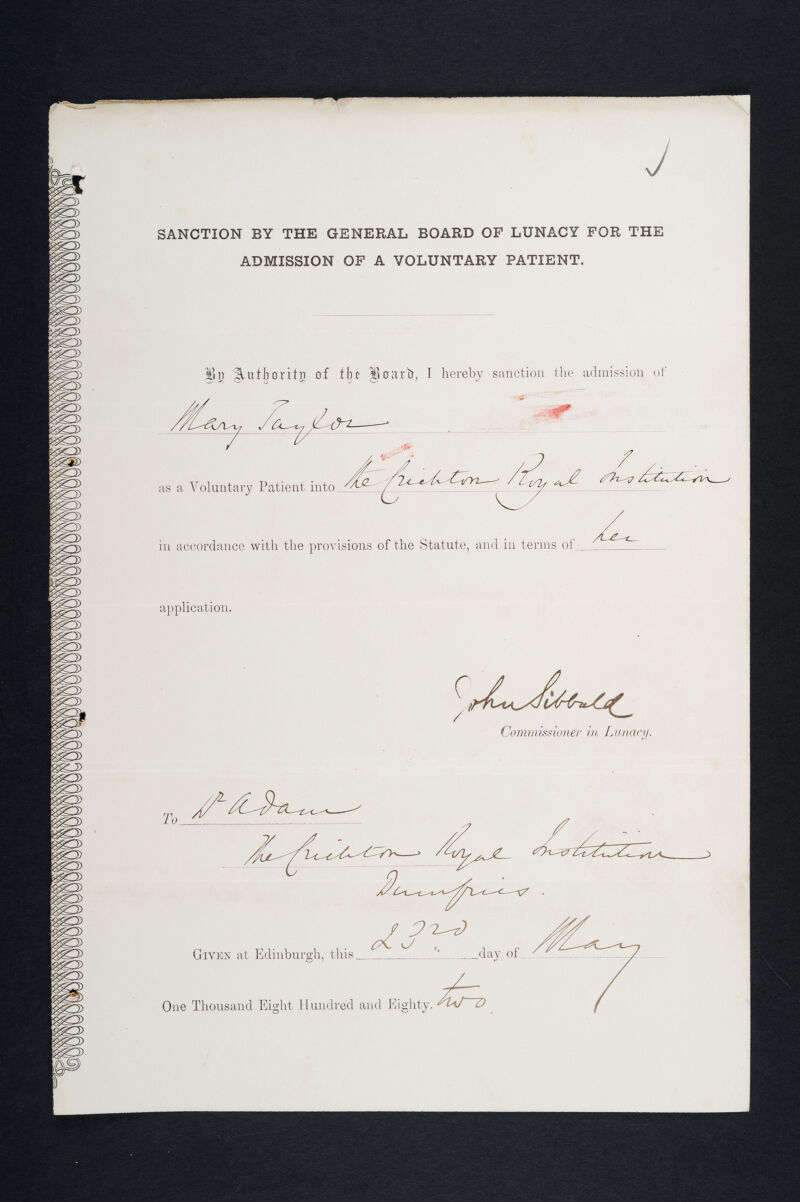 SANCTION BY THE GENERAL BOARD OF LUNACY FOR THE
ADMISSION OF A VOLUNTARY PATIENT.
By Authority of the Board, I hereby sanction the admission of
Mary Taylor
as a Voluntary Patient into The Crichton Royal Institution
in accordance with the provisions of the Statute, and in terms of her
application.
John Sibbald
Commissioner in Lunacy.
To Dr Adam
The Crichton Royal Institution
Dumfries.
GIVEN at Edinburgh, this 23rd day of May
One Thousand Eight Hundred and Eighty. two